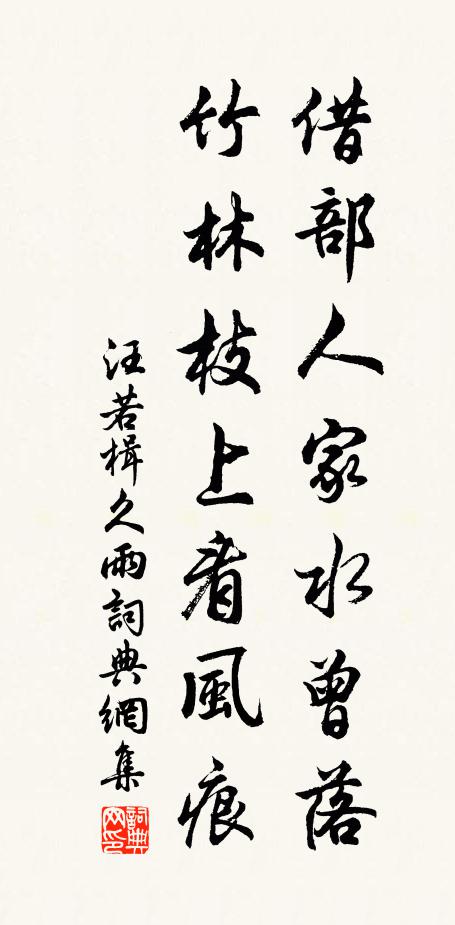 借部人家水曾落
竹林枝上看風痕
汪若楫久雨詞典網集
詞典網印